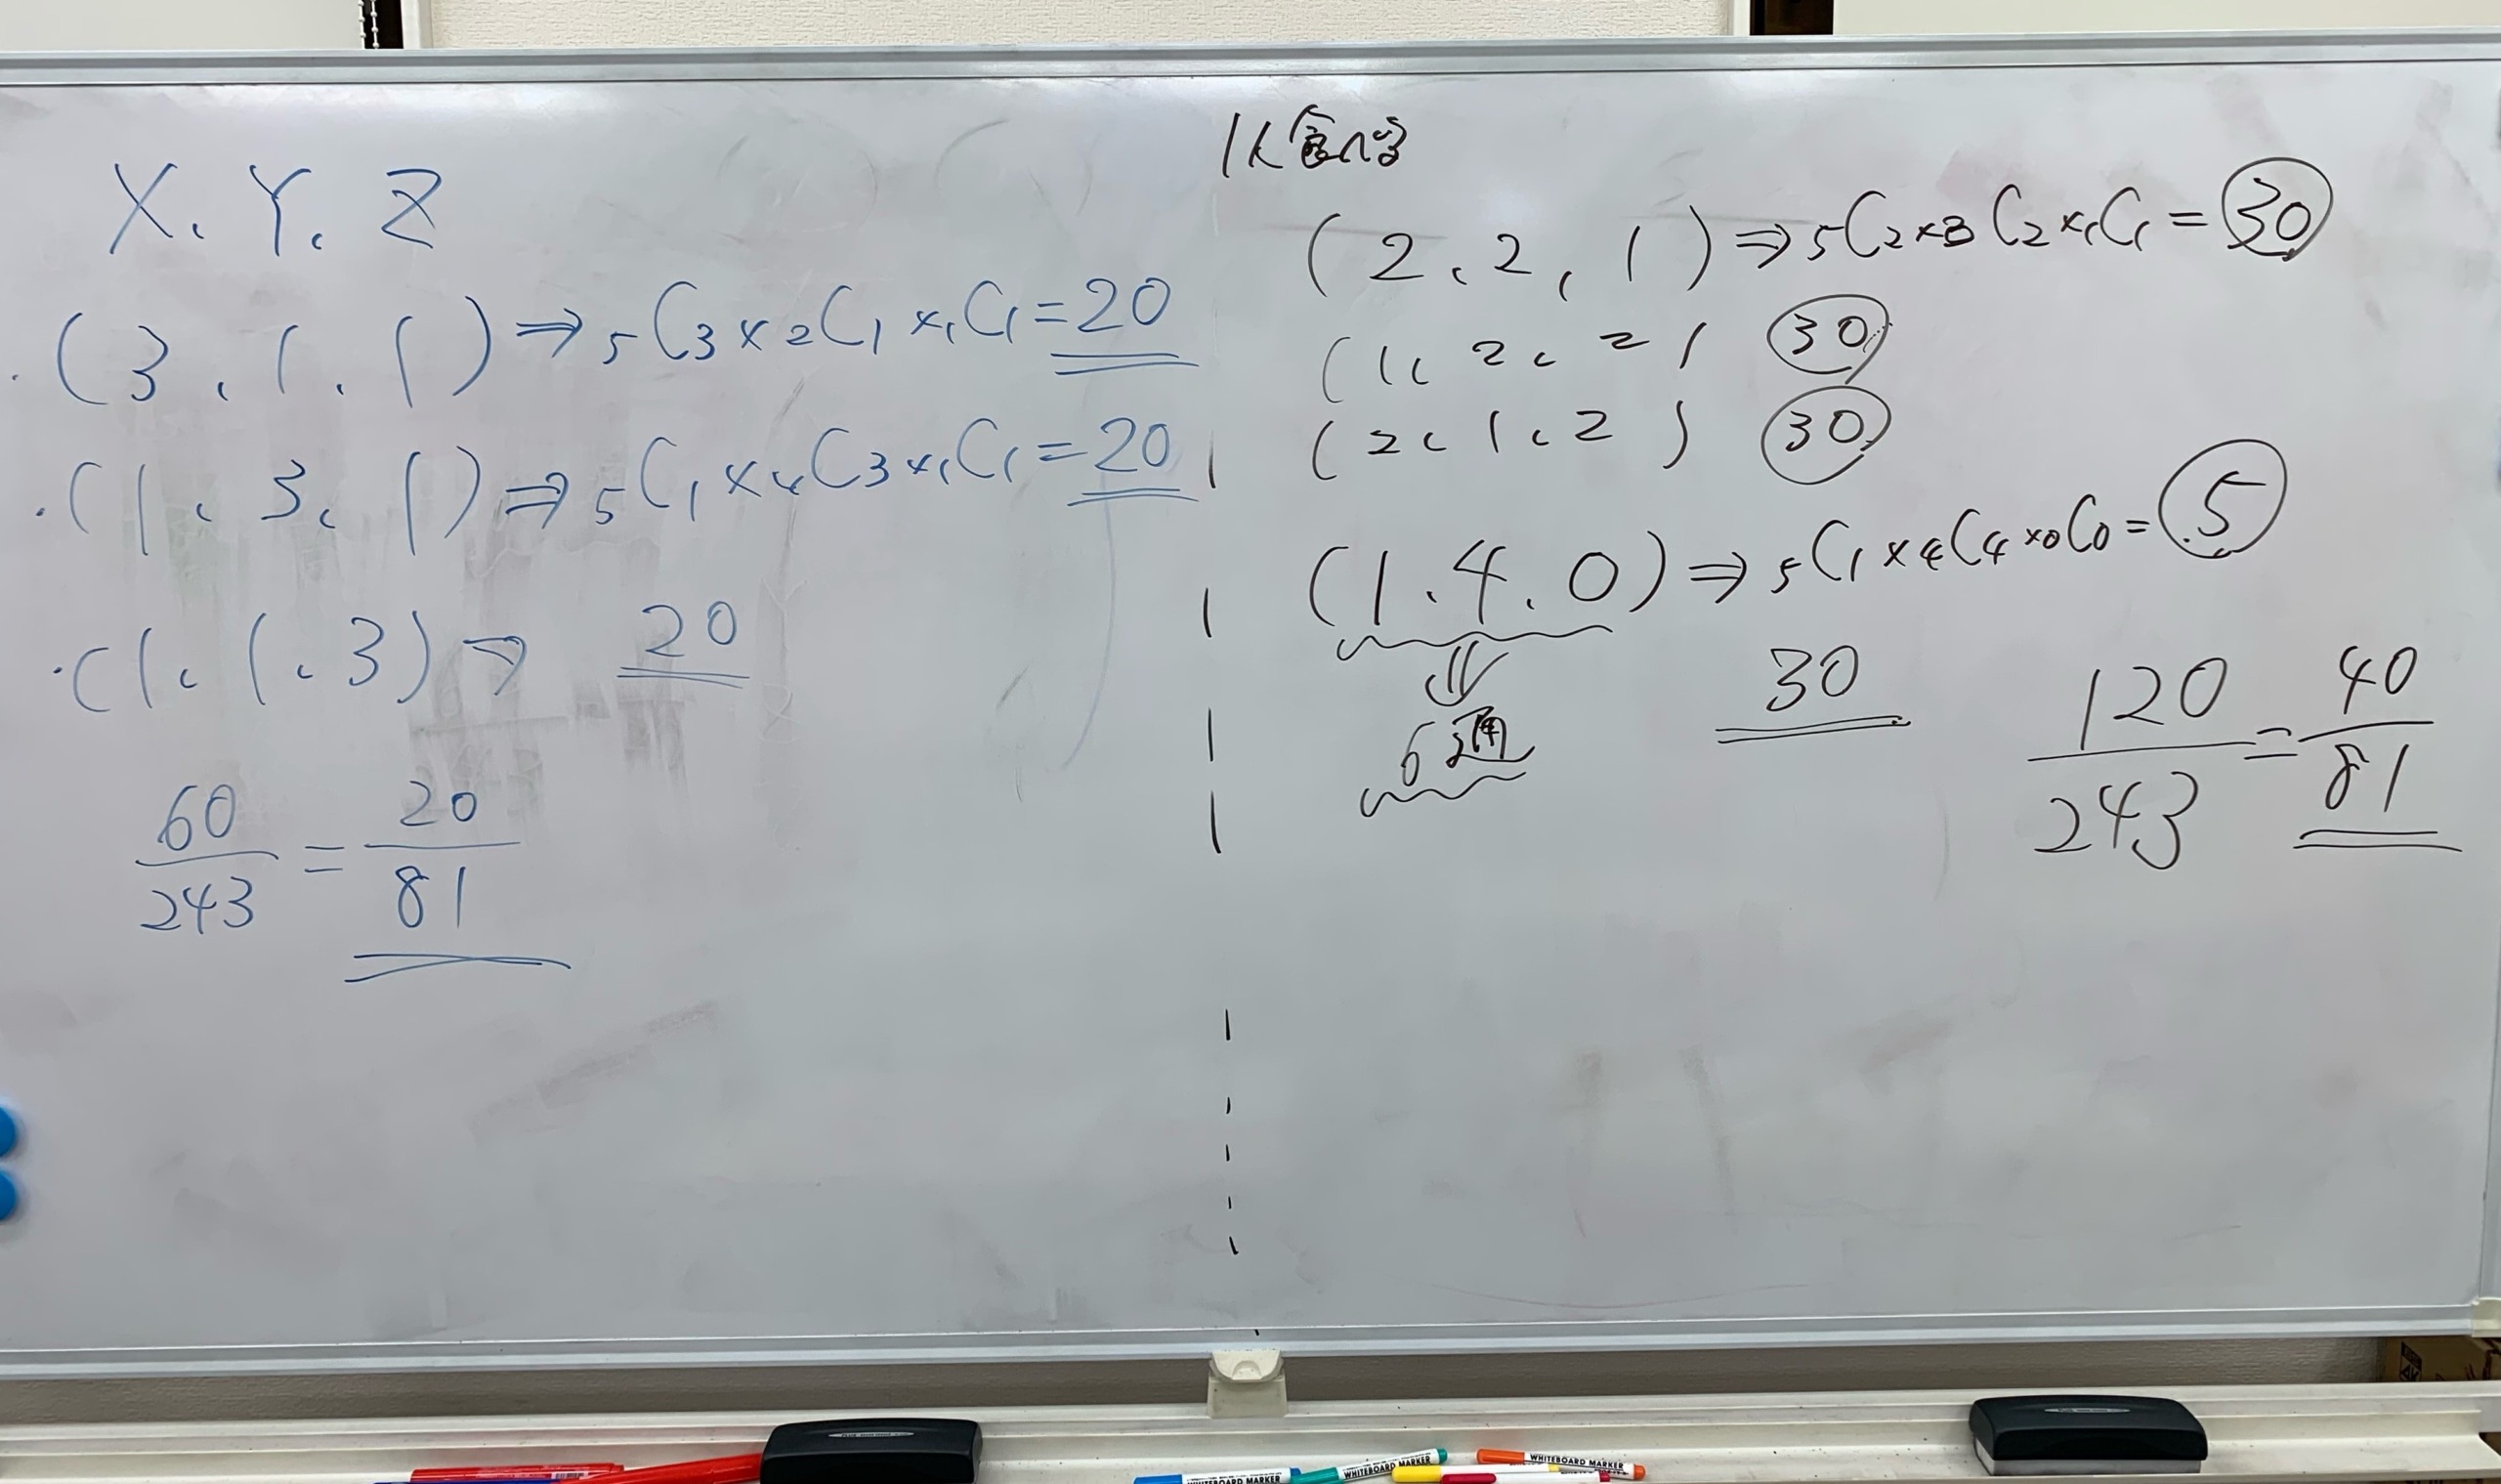 X、Y、Z
・(3、1、1)⇒₅C₃×₂C₁×₁C₁=20
・(1、3、1)⇒₅C₁×₄C₃×₁C₁=20
・(1、1、3)⇒ 20
60/243=20/81
(2、2、1)⇒₅C₂×₃C₂×₁C₁=30
(1、2、2) 30
(2、1、2) 30
(1、4、0)⇒₅C₁×₄C₄×₀C₀=5
⇓
6通 30
120/243=40/81
WHITEBOARD MARKER
WHITEBOARD MARKER
WHITEBOARD MARKER